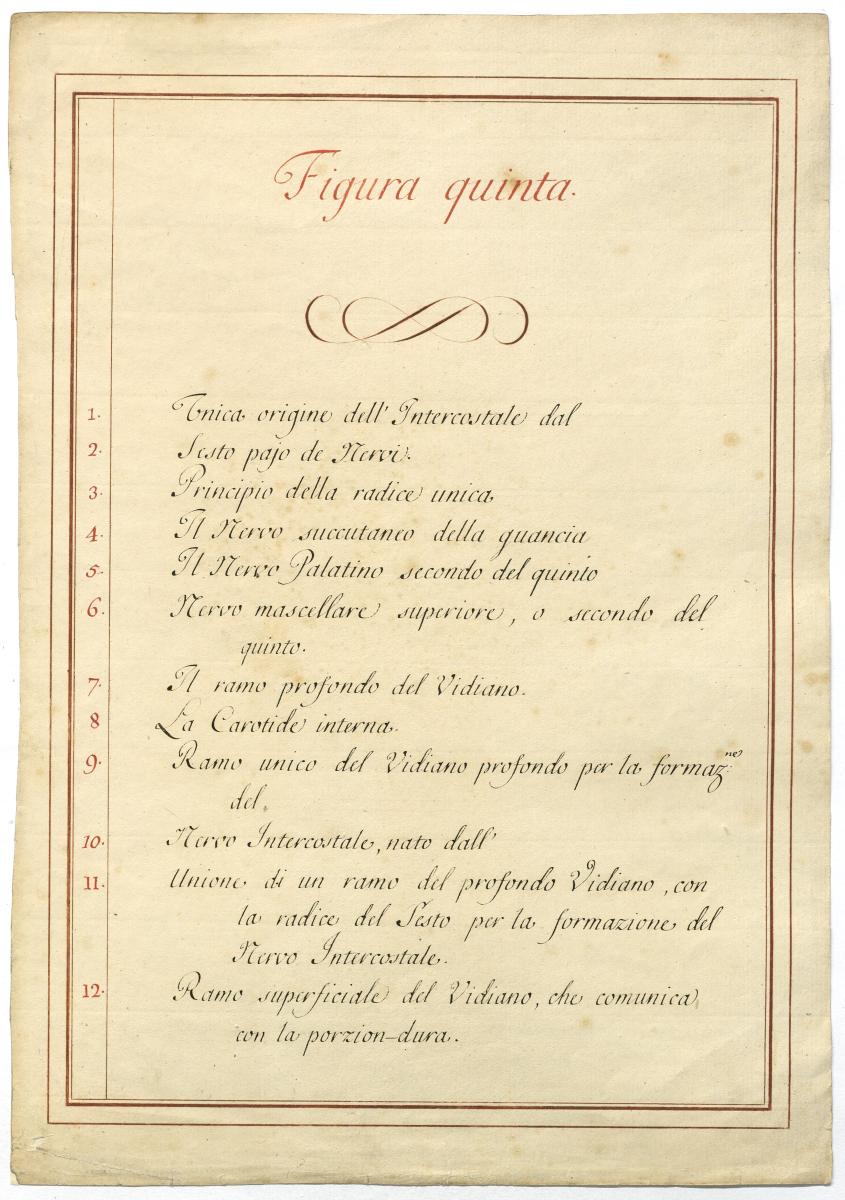 Figura quinta.
1. Unica origine dell' Intercostale dal
2. Sesto pajo de Nervi.
3. Principio della radice unica
4. Il Nervo succutaneo della guancia
5. Il Nervo Palatino secondo del quinto
6. Nervo mascellare superiore, o secondo del
quinto.
7. Il ramo profondo del Vidiano.
8 La Carotide interna.
9. Ramo unico del Vidiano profondo per la formaz:ne
del.
10. Nervo Intercostale, nato dall'
11. Unione di un ramo del profondo Vidiano, con
la radice del Sesto per la formazione del
Nervo Intercostale.
12. Ramo superficiale del Vidiano, che comunica
con la porzion-dura.